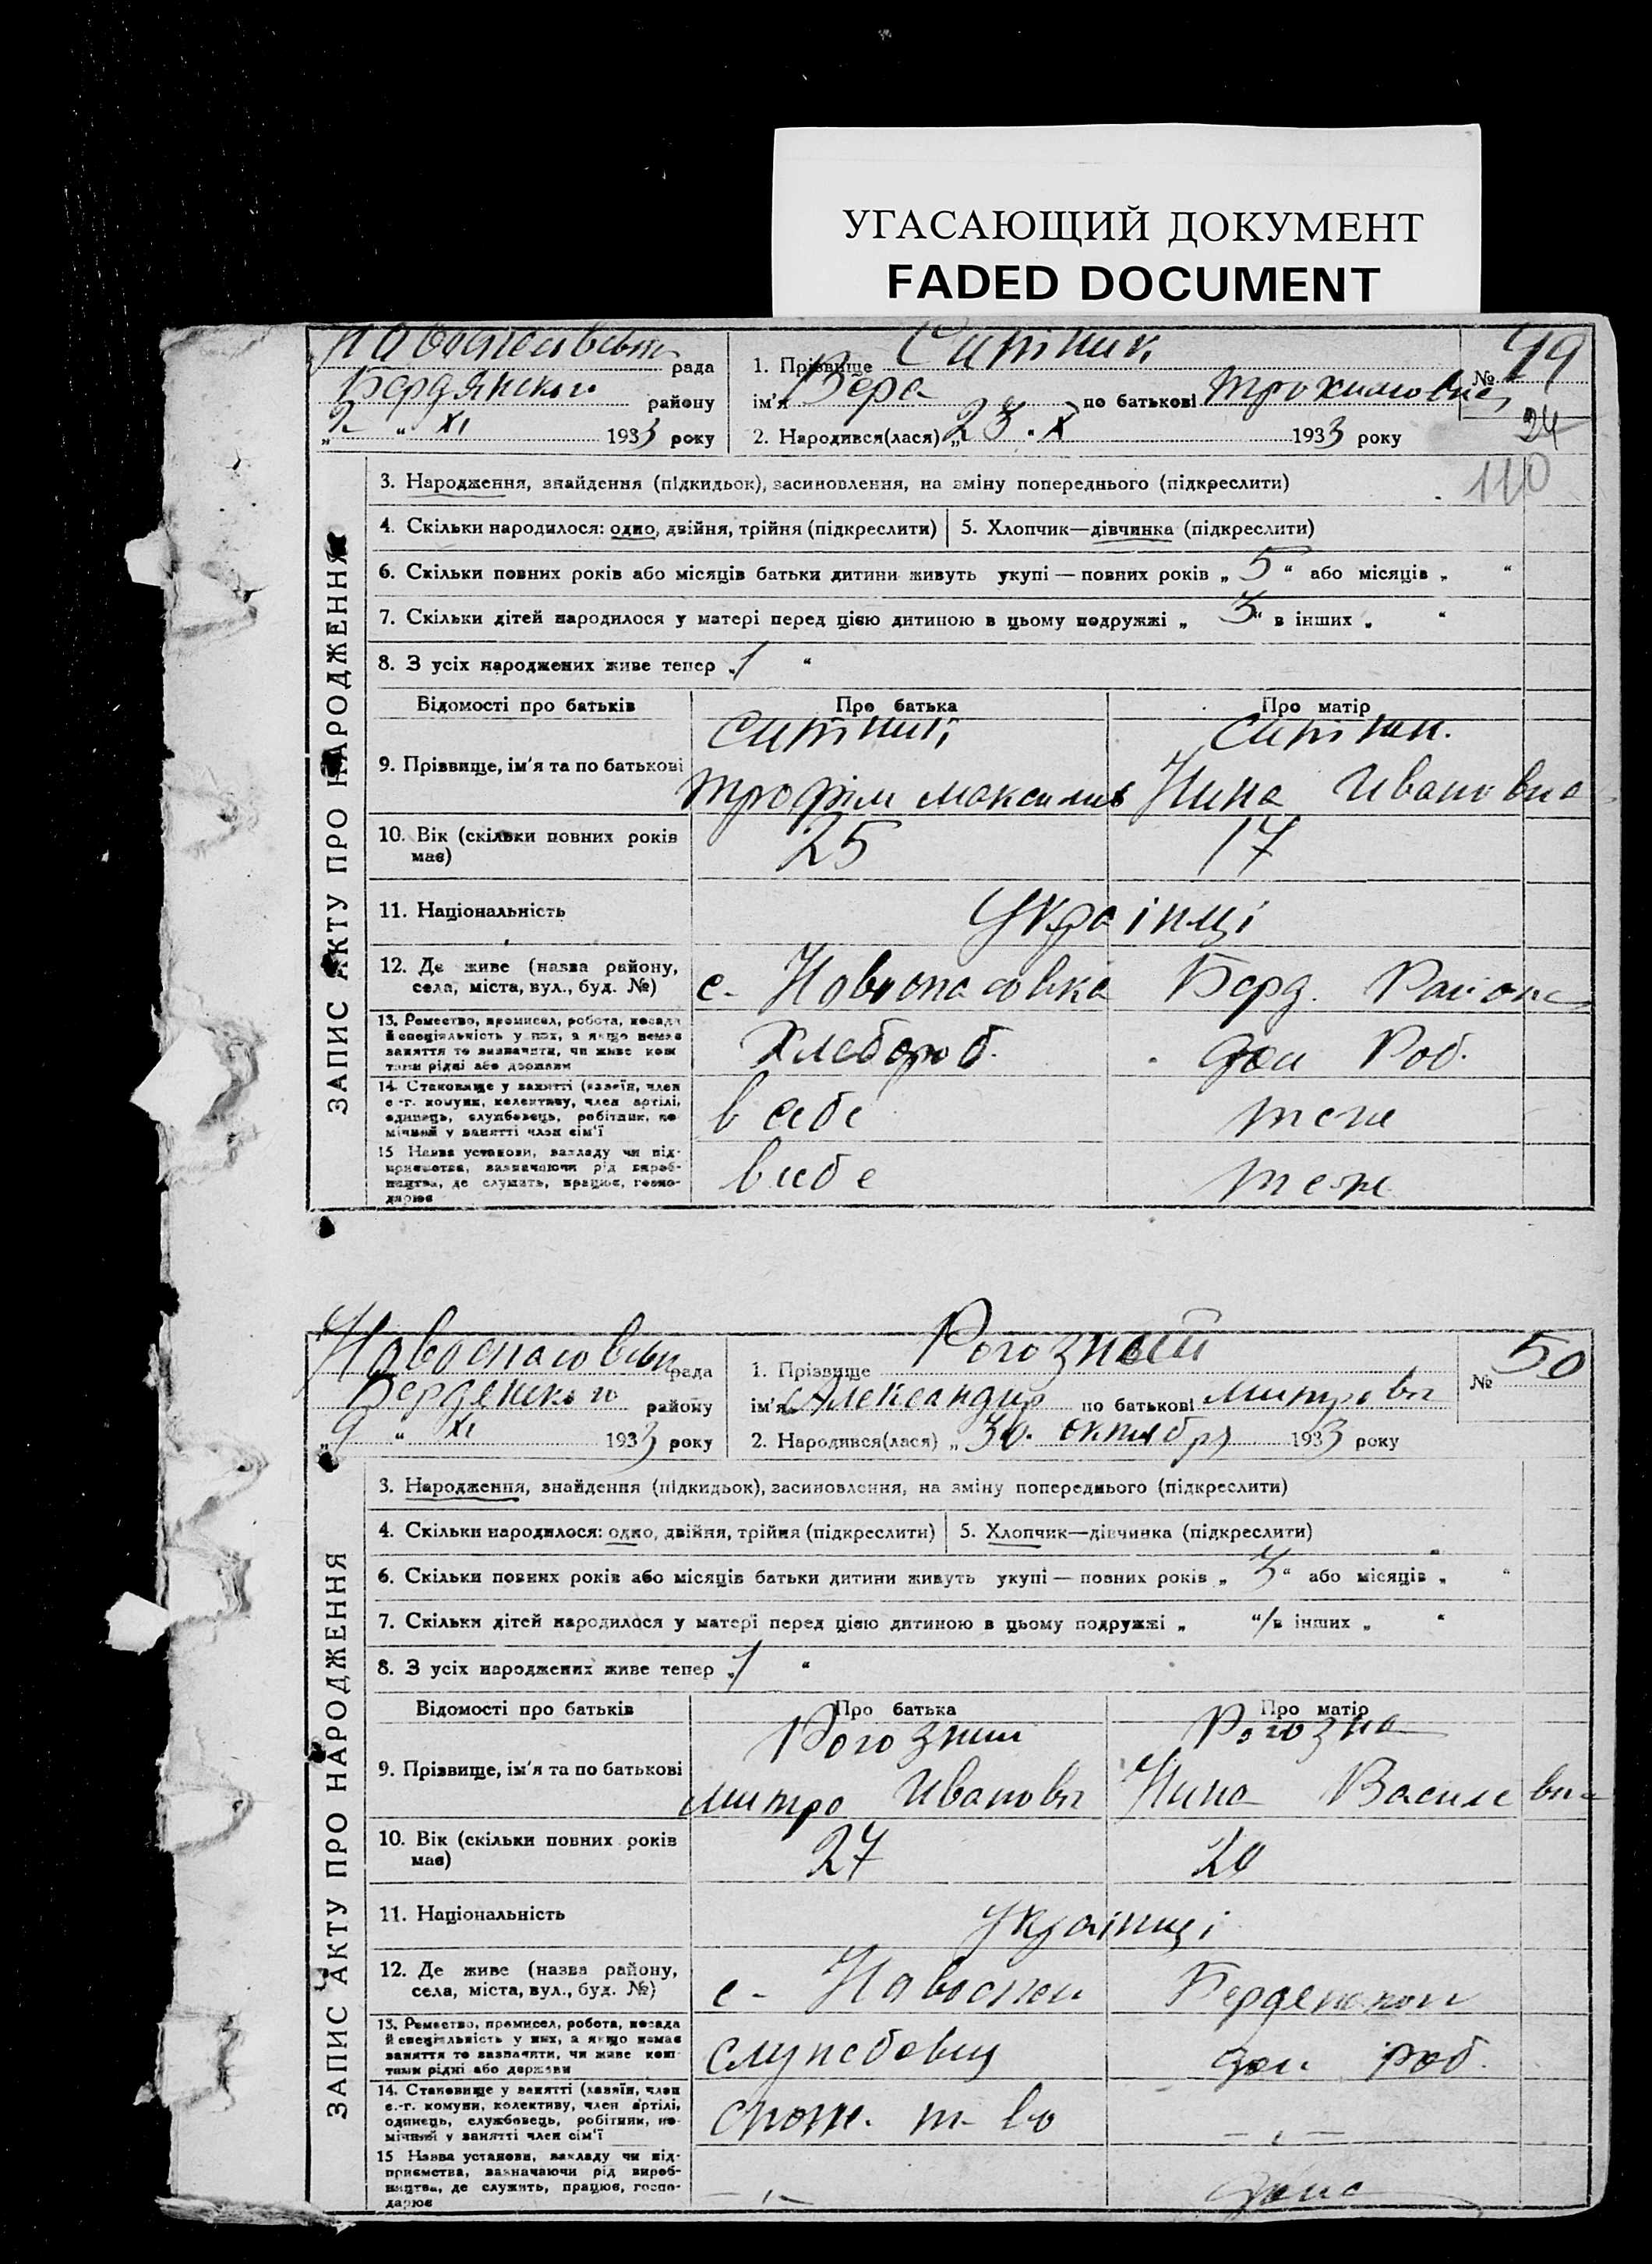 УГАСАЮЩИЙ ДОКУМЕНТ
FADED DOCUMENT
рада
Бердянського району
„2 “ XI 1933 року
1. Прізвище Ситник
ім'я Вера по батькові Трохимовна
2. Народився(лася) „23 “ X 1933 року
№ 49
24
110
ЗАПИС АКТУ ПРО НАРОДЖЕННЯ
3. Народження, знайдення (підкидьок), засиновлення, на зміну попереднього (підкреслити)
4. Скільки народилося: одно, двійня, трійня (підкреслити) 5. Хлопчик—дівчинка (підкреслити)
6. Скільки повних років або місяців батьки дитини живуть укупі — повних років „ 5 “ або місяців „ “
7. Скільки дітей народилося у матері перед цією дитиною в цьому подружжі „ 3 “ в інших „ “
8. З усіх народжених живе тепер „ 1 “
Відомості про батьків Про батька Про матір
9. Прізвище, ім'я та по батькові Ситник Ситник
Трофім Максимив Нина Ивановна
10. Вік (скільки повних років 25 17
має)
11. Національність Українці
12. Де живе (назва району, с. Новоспасовка Берд. Района
села, міста, вул., буд. №)
13. Ремество, промисел, робота, посада
й спеціяльність у них, а якщо немає Хлебороб. дом Роб.
заняття то зазначити, чи живе кош-
тами рідні або держави
14. Становище у занятті (хазяїн, член
с.-г. комуни, колективу, член артілі, в себе теж
одинець, службовець, робітник, по-
мічний у занятті член сім'ї
15 Назва установи, закладу чи під-
приємства, зазначаючи рід вироб- в себе теж
ництва, де служить, працює, госпо-
дарює
Новоспасовськ рада
району
„9 “ XI 1933 року
1. Прізвище
ім'я Александир по батькові Митрович
2. Народився(лася) „ 30. октября 1933 року
№ 50
ЗАПИС АКТУ ПРО НАРОДЖЕННЯ
3. Народження, знайдення (підкидьок), засиновлення, на зміну попереднього (підкреслити)
4. Скільки народилося: одно, двійня, трійня (підкреслити) 5. Хлопчик—дівчинка (підкреслити)
6. Скільки повних років або місяців батьки дитини живуть укупі — повних років „ 3 “ або місяців „ “
7. Скільки дітей народилося у матері перед цією дитиною в цьому подружжі „ “ 1 в інших „ “
8. З усіх народжених живе тепер „ 1 “
Відомості про батьків Про батька Про матір
9. Прізвище, ім'я та по батькові Рогозна
Митро Иванович Нина Василевна
10. Вік (скільки повних років 27 20
має)
11. Національність Українці
12. Де живе (назва району, с.
села, міста, вул., буд. №)
13. Ремество, промисел, робота, посада
й спеціяльність у них, а якщо немає службовец дом роб.
заняття то зазначити, чи живе кош-
тами рідні або держави
14. Становище у занятті (хазяїн, член
с.-г. комуни, колективу, член артілі, спож. т-во — „ —
одинець, службовець, робітник, по-
мічний у занятті член сім'ї
15 Назва установи, закладу чи під-
приємства, зазначаючи рід вироб-
ництва, де служить, працює, госпо- — „ — дома
дарює